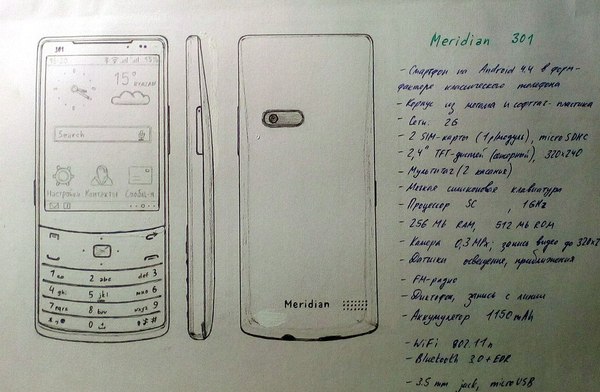 Meridian 301
- Смартфон на Android 4.4 в форм-
факторе классического телефона
- Корпус из металла и софттач-пластика
- Сети: 2G
- 2 SIM-карты (1 р/модуль), microSDHC
- 2,4" TFT-дисплей (сенсорный), 320x240
- Мультитач (2 касания)
- Мягкая силиконовая клавиатура
- Процессор SC , 1GHz
- 256 Mb RAM, 512 Mb ROM
- Камера 0,3 MPx; запись видео до 320x2
- Датчики освещение, приближения
- FM-радио
- Диктофон, запись с линии
- Аккумулятор 1150 mAh
- WiFi 802.11n
- Bluetooth 3.0 + EDR
- 3.5 mm jack, microUSB
15°
Search
Настройки Контакты Сообщ-я
1 2 abc def 3
4 ghi 5 jkl mno 6
7 pqrs 8 tuv wxyz 9
0
Meridian